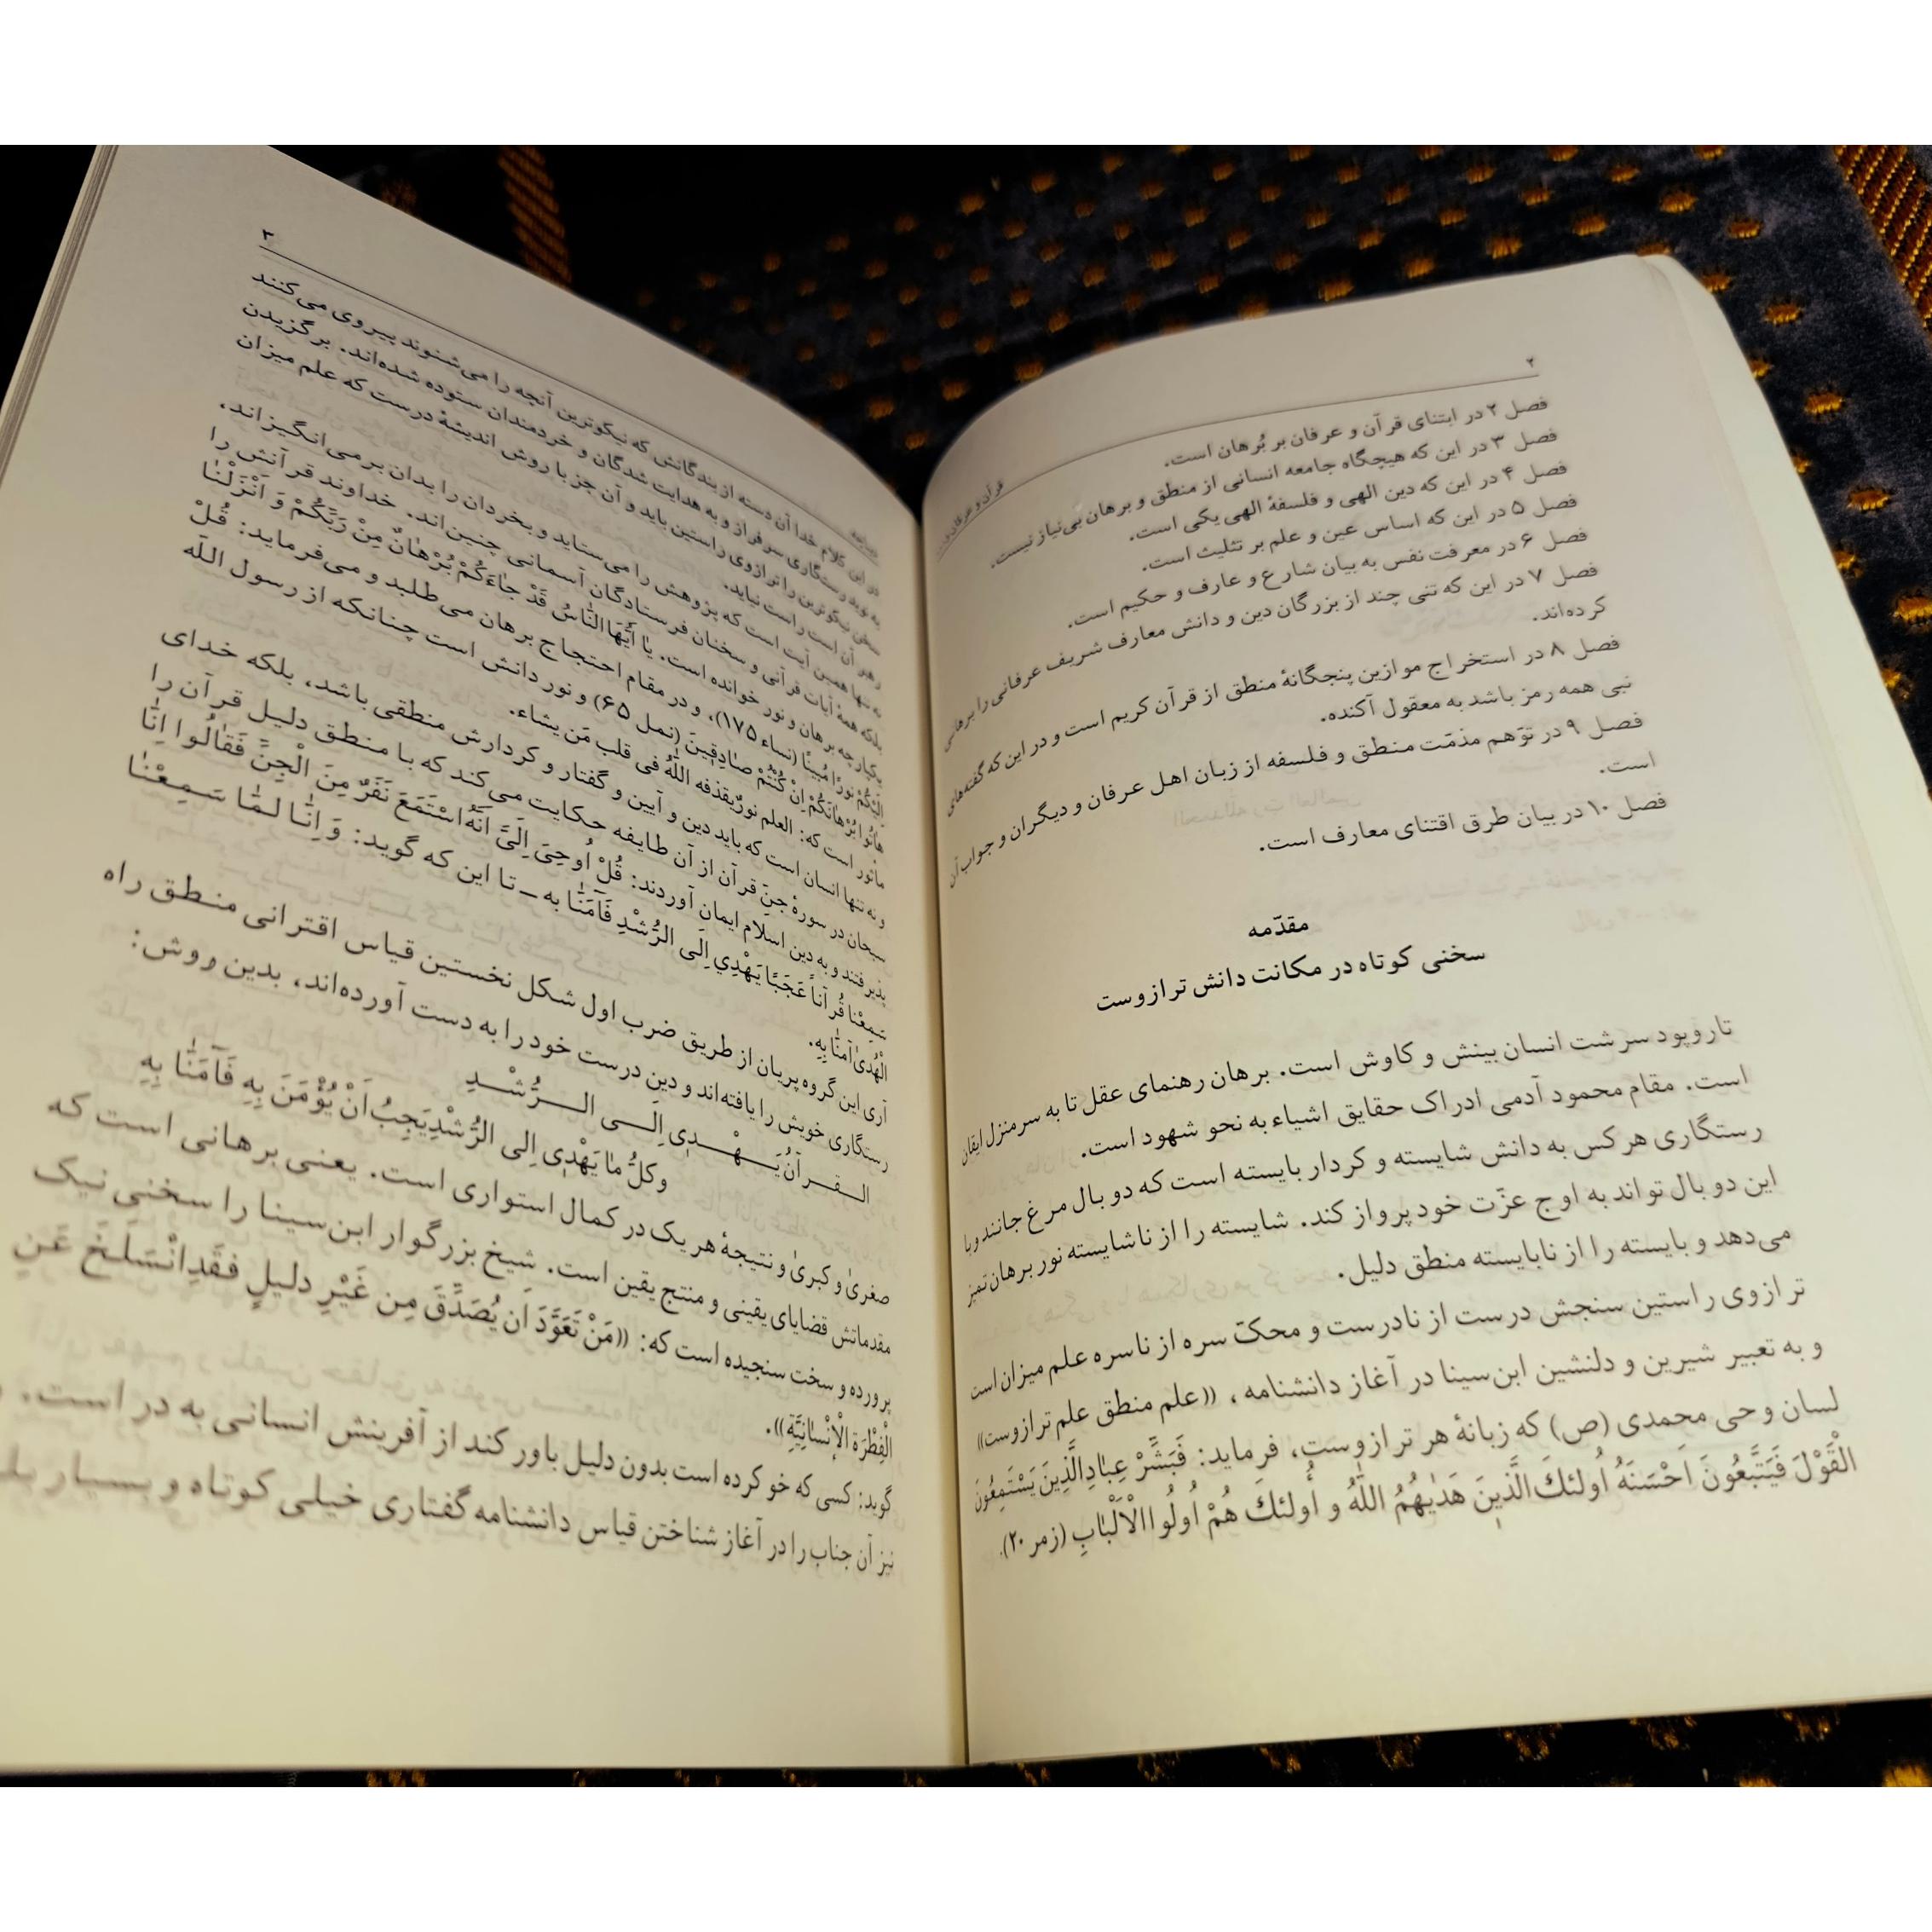 ۲
قرآن و عرفان و
فصل ۲ در ابتنای قرآن و عرفان بر بُرهان است.
فصل ۳ در این که هیچگاه جامعه انسانی از منطق و برهان بی‌نیاز نیست.
فصل ۴ در این که دین الهی و فلسفهٔ الهی یکی است.
فصل ۵ در این که اساس عین و علم بر تثلیث است.
فصل ۶ در معرفت نفس به بیان شارع و عارف و حکیم است.
فصل ۷ در این که تنی چند از بزرگان دین و دانش معارف شریف عرفانی را برهانی
کرده‌اند.
فصل ۸ در استخراج موازین پنجگانهٔ منطق از قرآن کریم است و در این که گفته‌های
نبی همه رمز باشد به معقول آکنده.
فصل ۹ در توّهم مذمّت منطق و فلسفه از زبان اهل عرفان و دیگران و جواب آن
است.
فصل ۱۰ در بیان طرق اقتنای معارف است.
مقدّمه
سخنی کوتاه در مکانت دانش ترازوست
تاروپود سرشت انسان بینش و کاوش است. برهان رهنمای عقل تا به سرمنزل ایقان
است. مقام محمود آدمی ادراک حقایق اشیاء به نحو شهود است.
رستگاری هر کس به دانش شایسته و کردار بایسته است که دو بال مرغ جانند و با
این دو بال تواند به اوج عزّت خود پرواز کند. شایسته را از ناشایسته نور برهان تمیز
می‌دهد و بایسته را از نابایسته منطق دلیل.
ترازوی راستین سنجش درست از نادرست و محکّ سره از ناسره علم میزان است
و به تعبیر شیرین و دلنشین ابن‌سینا در آغاز دانشنامه، «علم منطق علم ترازوست»
لسان وحی محمدی (ص) که زبانهٔ هر ترازوست، فرماید: فَبَشِّرْ عِبٰادِ الَّذِینَ یَسْتَمِعُونَ
الْقَوْلَ فَیَتَّبِعُونَ اَحْسَنَهُ اُولئكَ الَّذِینَ هَدٰیهُمُ اللّٰهُ و اُولئكَ هُمْ اُولُوا الْاَلْبٰابِ (زمر ۲۰).
۳
در این کلام خدا آن دسته از بندگانش که نیکوترین آنچه را می‌شنوند پیروی می‌کنند
به نوید رستگاری سرفراز و به هدایت شدگان و خردمندان ستوده شده‌اند. برگزیدن
سخن نیکوترین را ترازوی راستین باید و آن جز با روش اندیشهٔ درست که علم میزان
رهبر آن است راست نیاید.
نه تنها همین آیت است که پژوهش را می‌ستاید و بخردان را بدان برمی‌انگیزاند،
بلکه همهٔ آیات قرآنی و سخنان فرستادگان آسمانی چنین‌اند. خداوند قرآنش را
یکپارچه برهان و نور خوانده است. یٰا اَیُّهَا النّٰاسُ قَدْ جٰاءَکُمْ بُرْهٰانٌ مِنْ رَبِّکُمْ وَ اَنْزَلْنٰا
اِلَیْکُمْ نُورًا مُبینًا (نساء ۱۷۵)، و در مقام احتجاج برهان می‌طلبد و می‌فرماید: قُلْ
هٰاتُوا بُرْهٰانَکُمْ اِنْ کُنْتُمْ صٰادِقِینَ (نمل ۶۵) و نور دانش است چنانکه از رسول اللّه
مأثور است که: العلم نورٌ یقذفه اللّٰهُ فی قلب مَن یشاء.
و نه تنها انسان است که باید دین و آیین و گفتار و کردارش منطقی باشد، بلکه خدای
سبحان در سورهٔ جنّ قرآن از آن طایفه حکایت می‌کند که با منطق دلیل قرآن را
پذیرفتند و به دین اسلام ایمان آوردند: قُلْ اُوحِیَ اِلَیَّ اَنَّهُ اسْتَمَعَ نَفَرٌ مِنَ الْجِنِّ فَقٰالُوا اِنّٰا
سَمِعْنٰا قُرآناً عَجَبًا یَهْدِی اِلَی الرُّشْدِ فَآمَنّٰا بِه – تا این که گوید: وَ اِنّٰا لَمّٰا سَمِعْنٰا
الْهُدیٰ آمنّٰا بِهِ.
آری این گروه پریان از طریق ضرب اول شکل نخستین قیاس اقترانی منطق راه
رستگاری خویش را یافته‌اند و دین درست خود را به دست آورده‌اند، بدین روش:
القرآنُ یَهْدِی اِلَی الرُّشْدِ
وکلُّ مٰا یَهْدِی اِلی الرُّشْدِ یَجِبُ اَنْ یُؤْمَنَ بِهِ فَآمَنّٰا بِهِ
صغریٰ و کبریٰ و نتیجهٔ هر یک در کمال استواری است. یعنی برهانی است که
مقدماتش قضایای یقینی و منتج یقین است. شیخ بزرگوار ابن‌سینا را سخنی نیک
پرورده و سخت سنجیده است که: «مَنْ تَعَوَّدَ اَن یُصَدِّقَ مِن غَیْرِ دلیلٍ فقَدِ انْسَلَخَ عَنِ
الْفِطْرَةِ الْاِنْسٰانِیَّةِ».
گوید: کسی که خو کرده است بدون دلیل باور کند از آفرینش انسانی به در است.
نیز آن جناب را در آغاز شناختن قیاس دانشنامه گفتاری خیلی کوتاه و بسیار